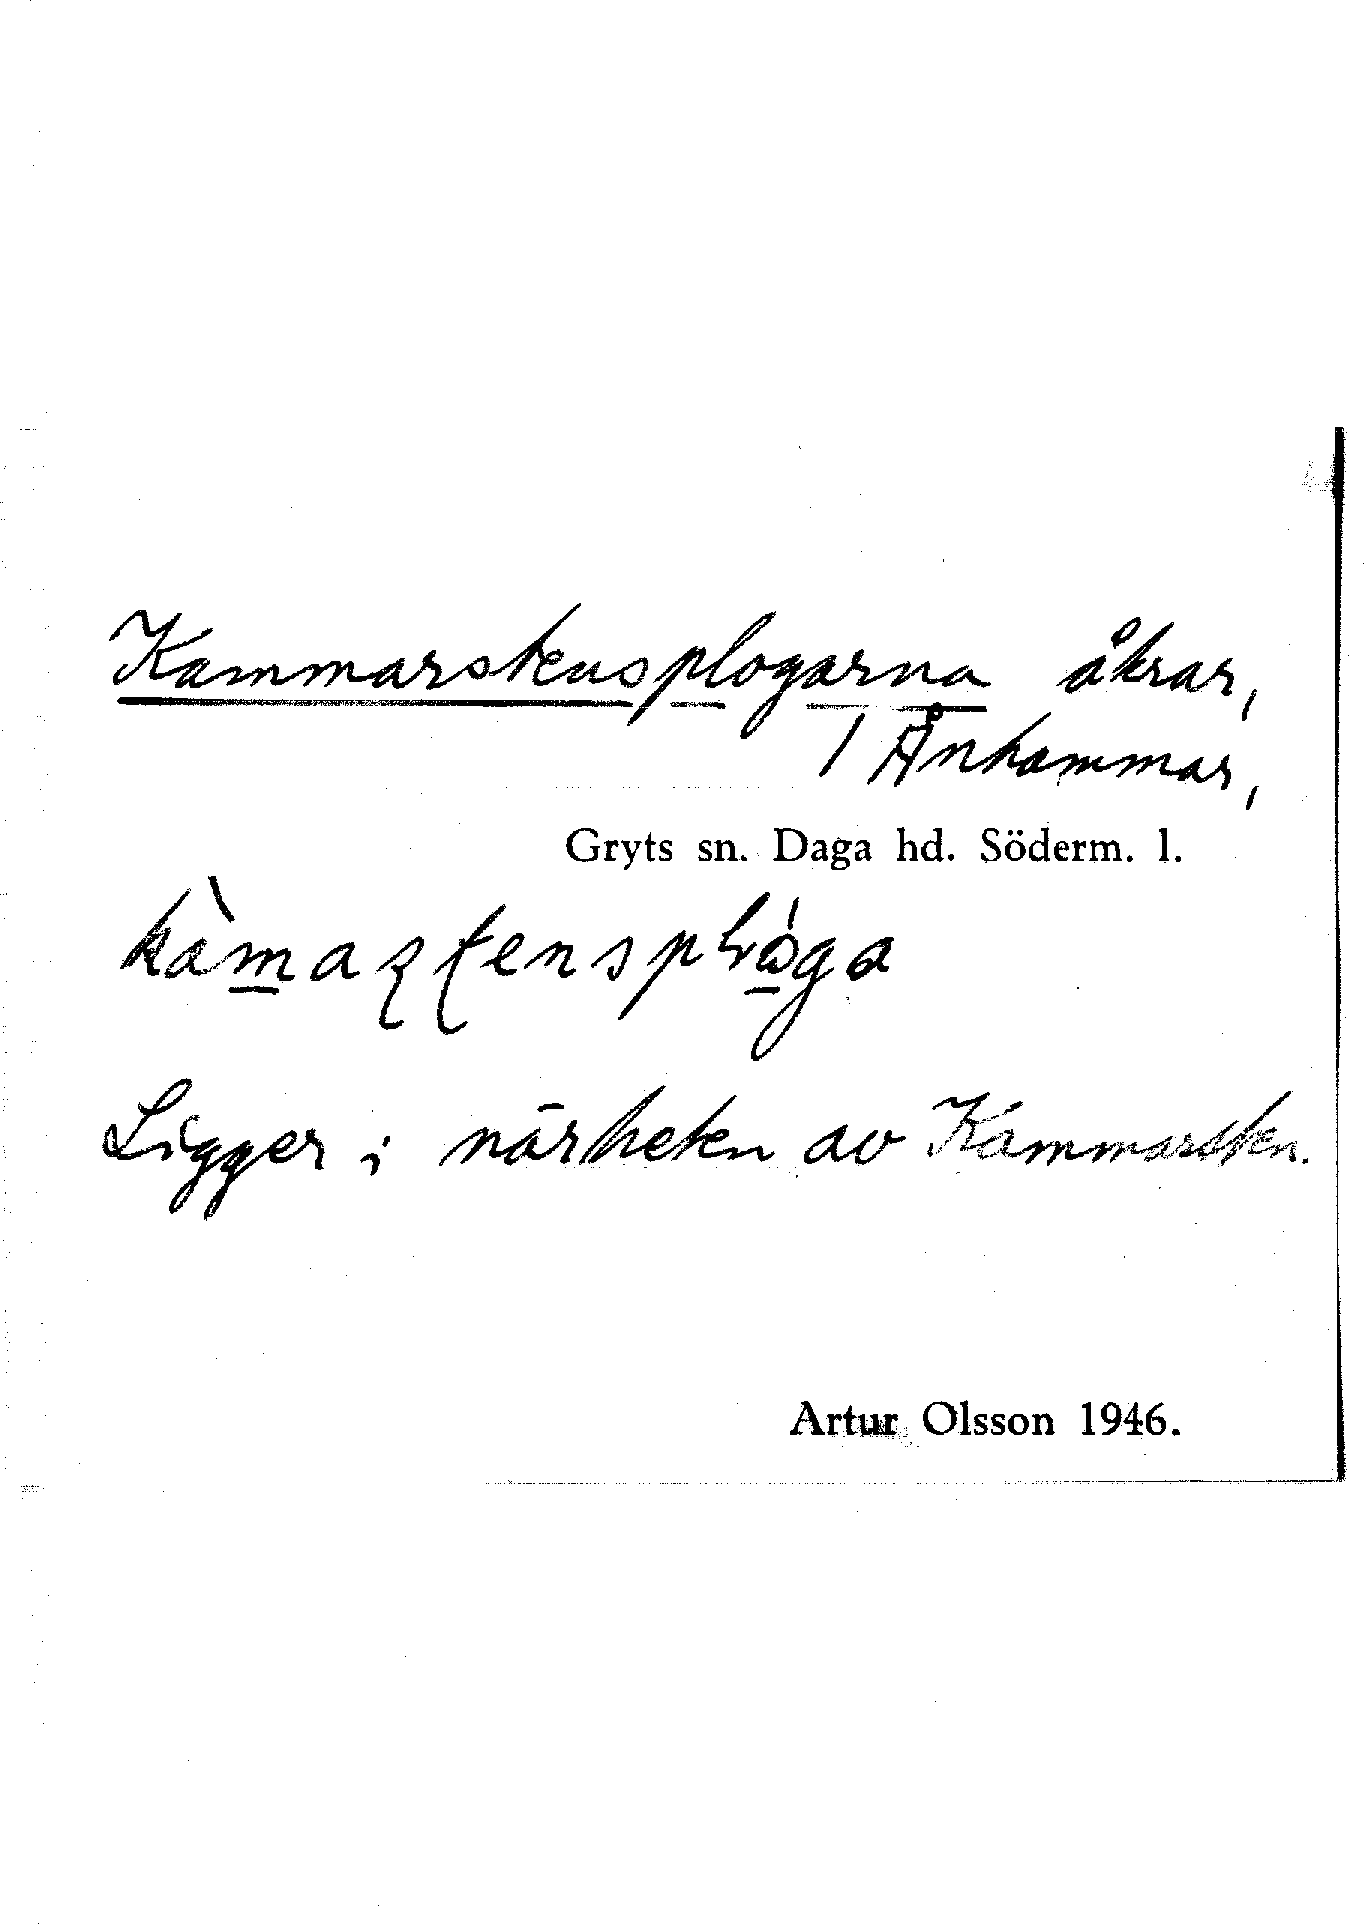 Kammarstensplogarna åkrar,
/ Ånhammar,
Gryts sn. Daga hd. Söderm. l.
Ligger i närheten av Kammarsten.
Artur Olsson 1946.